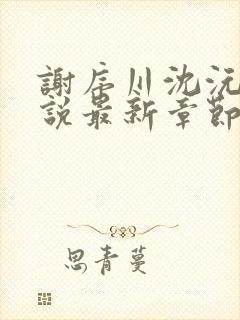 謝辰川沈沅
說最新章節
思青蔓